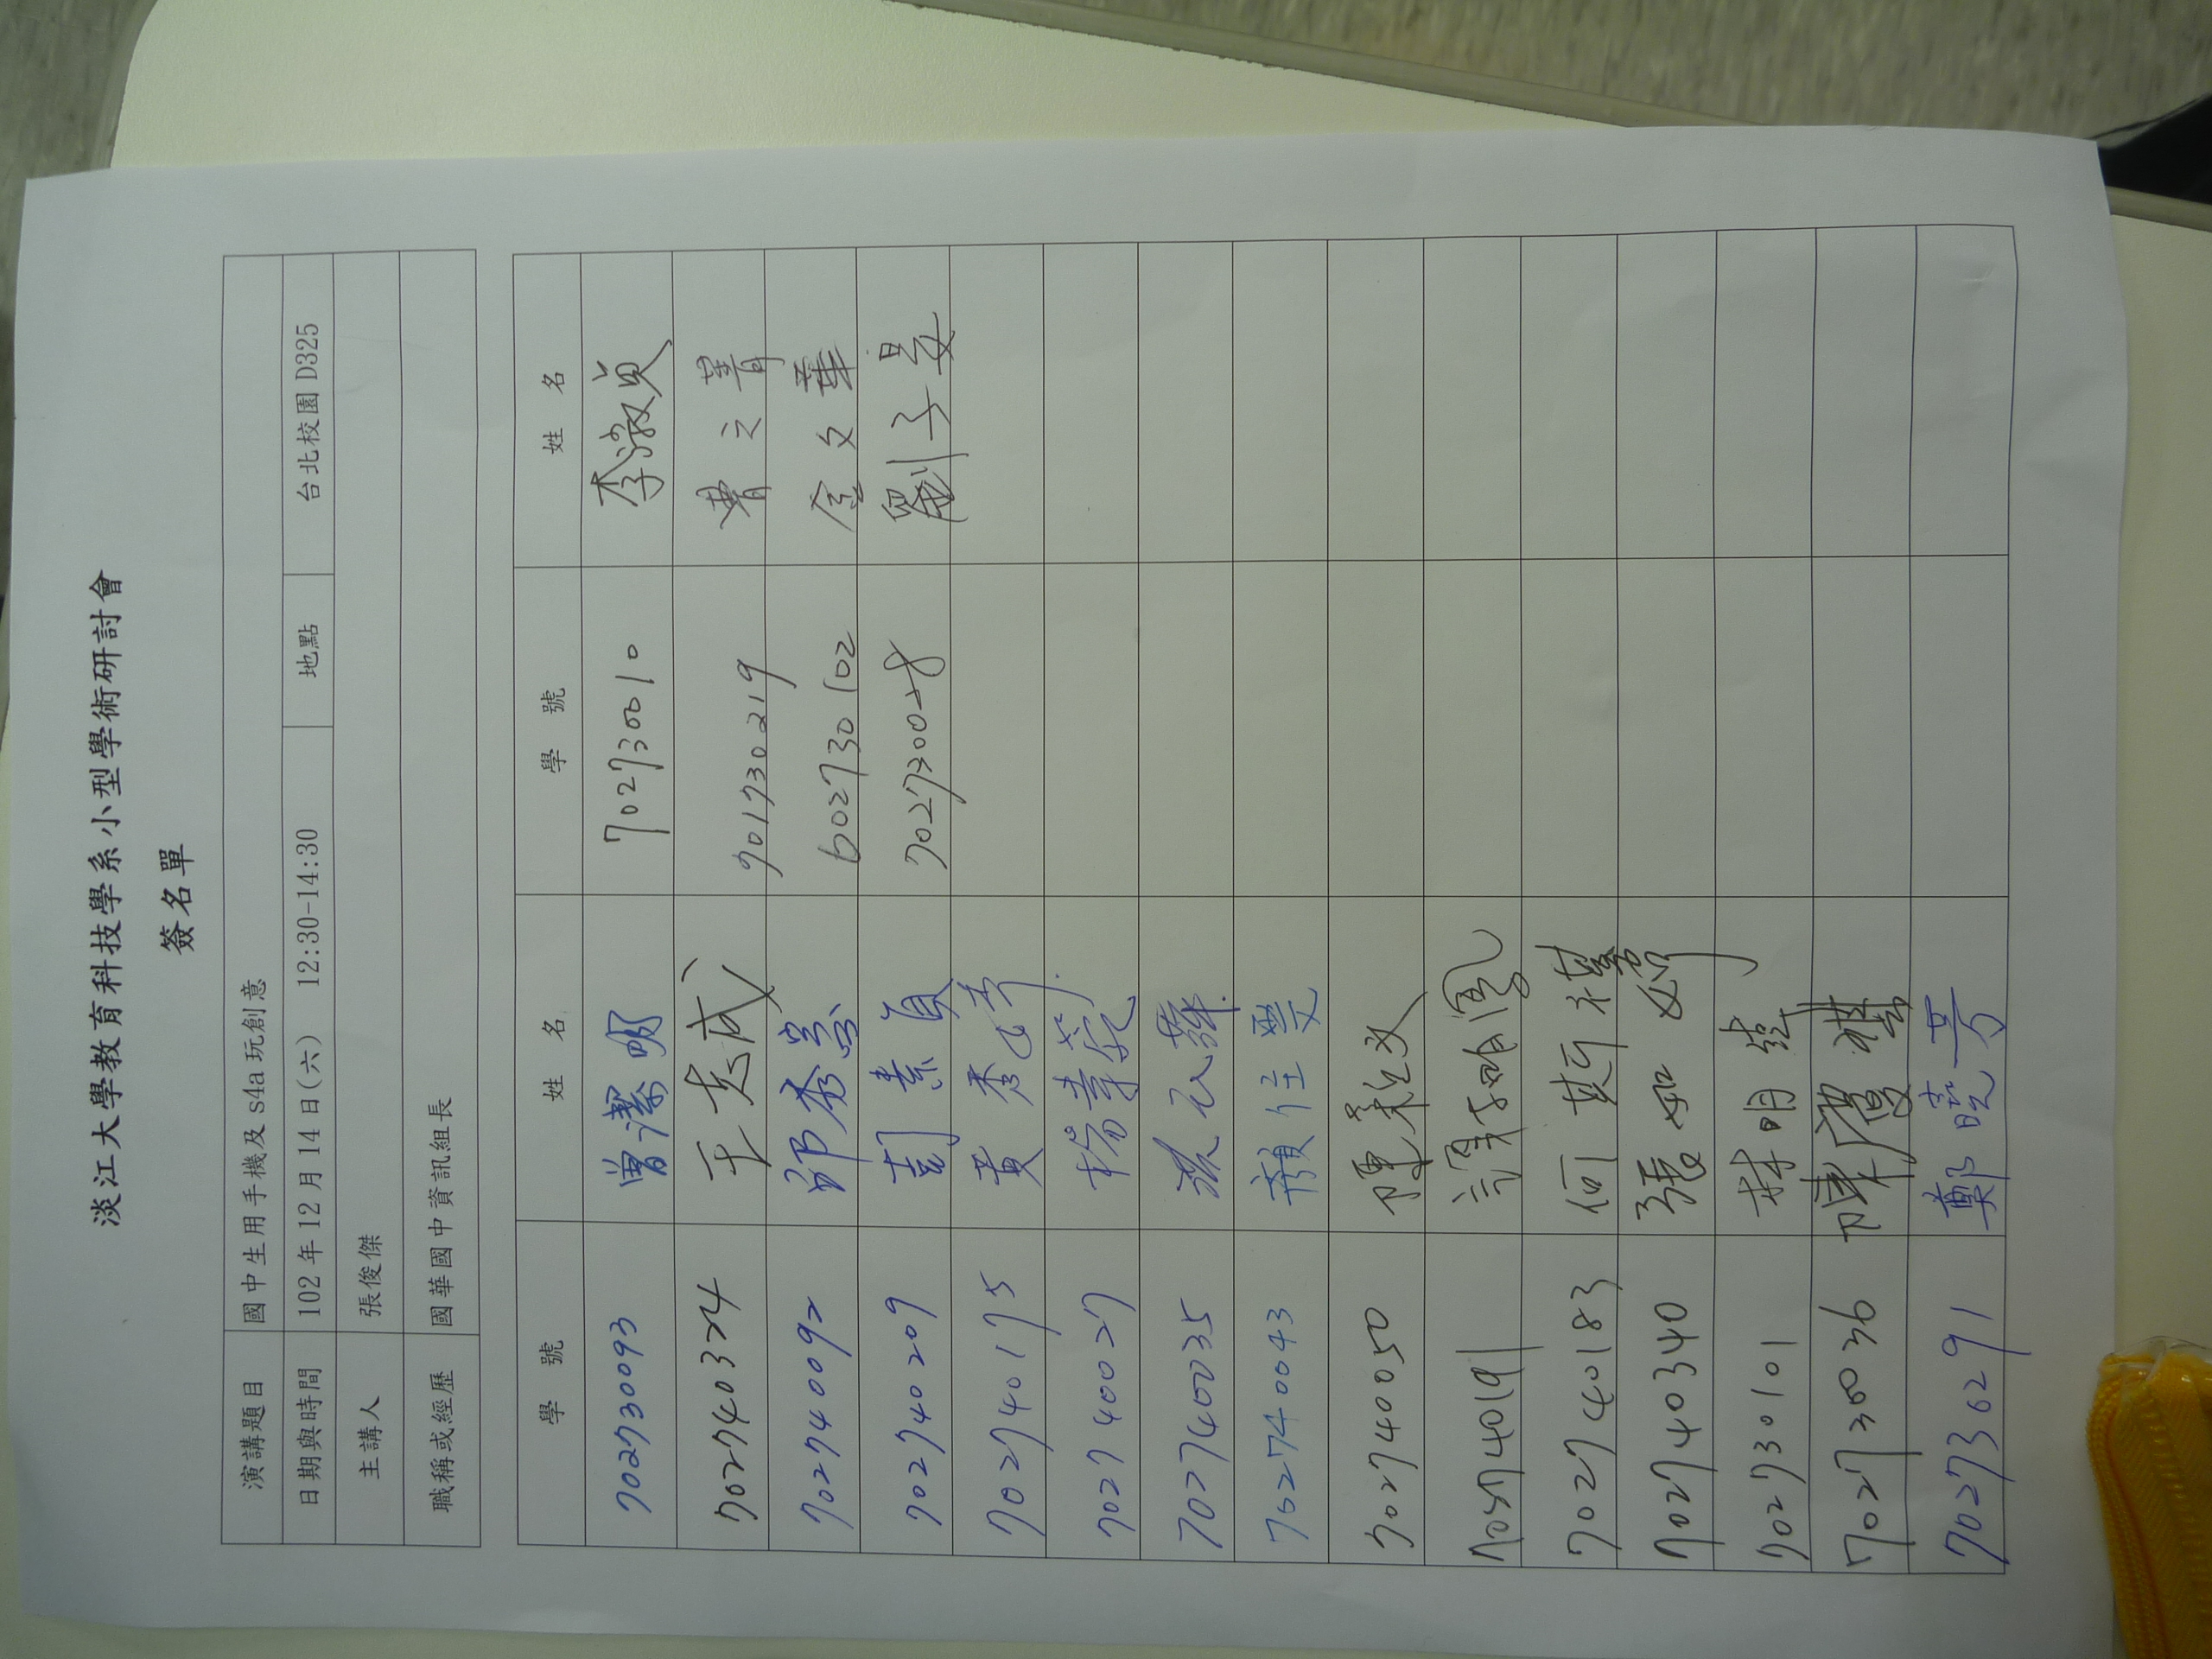 淡江大學教育科技學系小型學術研討會
簽名單
演講題目 國中生用手機及 s4a 玩創意
日期與時間 102 年 12 月 14 日(六) 12:30-14:30 地點 台北校園 D325
主講人 張俊傑
職稱或經歷 國華國中資訊組長
學 號 姓 名 學 號 姓 名
702730093 曾潔明 702730010 李淑貞
702740324 王志成 701730219 費之菁
702740092 邱秀意 602730102 金文華
702740209 彭素貞 702730028 劉子晏
702740175 黃秀
702740027 楊韋
702740035
702740043 顏佳雯
702740050 陳彩文
702740191
702740183 何
702740340 張如婷
702730101 林明
702730036 陳慶
702730291 鄭曉芳